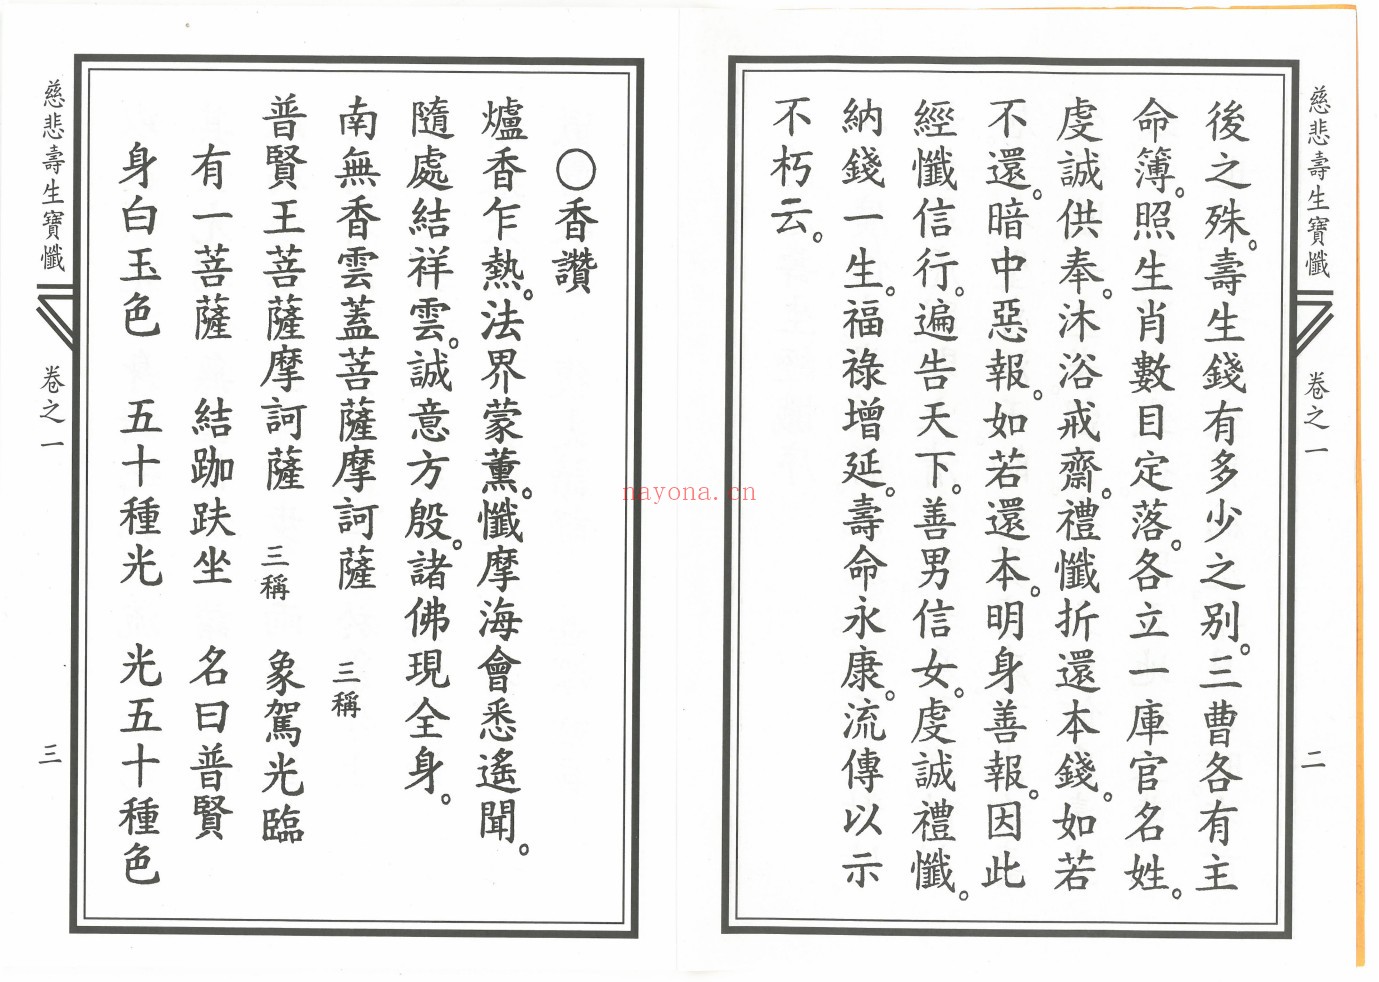 慈悲壽生寶懺 卷之一 二
後之殊。壽生錢有多少之別。三曹各有主
命簿。照生肖數目定落。各立一庫官名姓。
虔誠供奉。沐浴戒齋。禮懺折還本錢。如若
不還。暗中惡報。如若還本。明身善報。因此
經懺信行。遍告天下。善男信女。虔誠禮懺。
納錢一生。福祿增延。壽命永康。流傳以示
不朽云。
〇香讚
爐香乍熱。法界蒙薰。懺摩海會悉遙聞。
隨處結祥雲。誠意方殷。諸佛現全身。
南無香雲蓋菩薩摩訶薩 三稱
普賢王菩薩摩訶薩 三稱 象駕光臨
有一菩薩 結跏趺坐 名曰普賢
身白玉色 五十種光 光五十種色
慈悲壽生寶懺 卷之一 三
nayona.cn